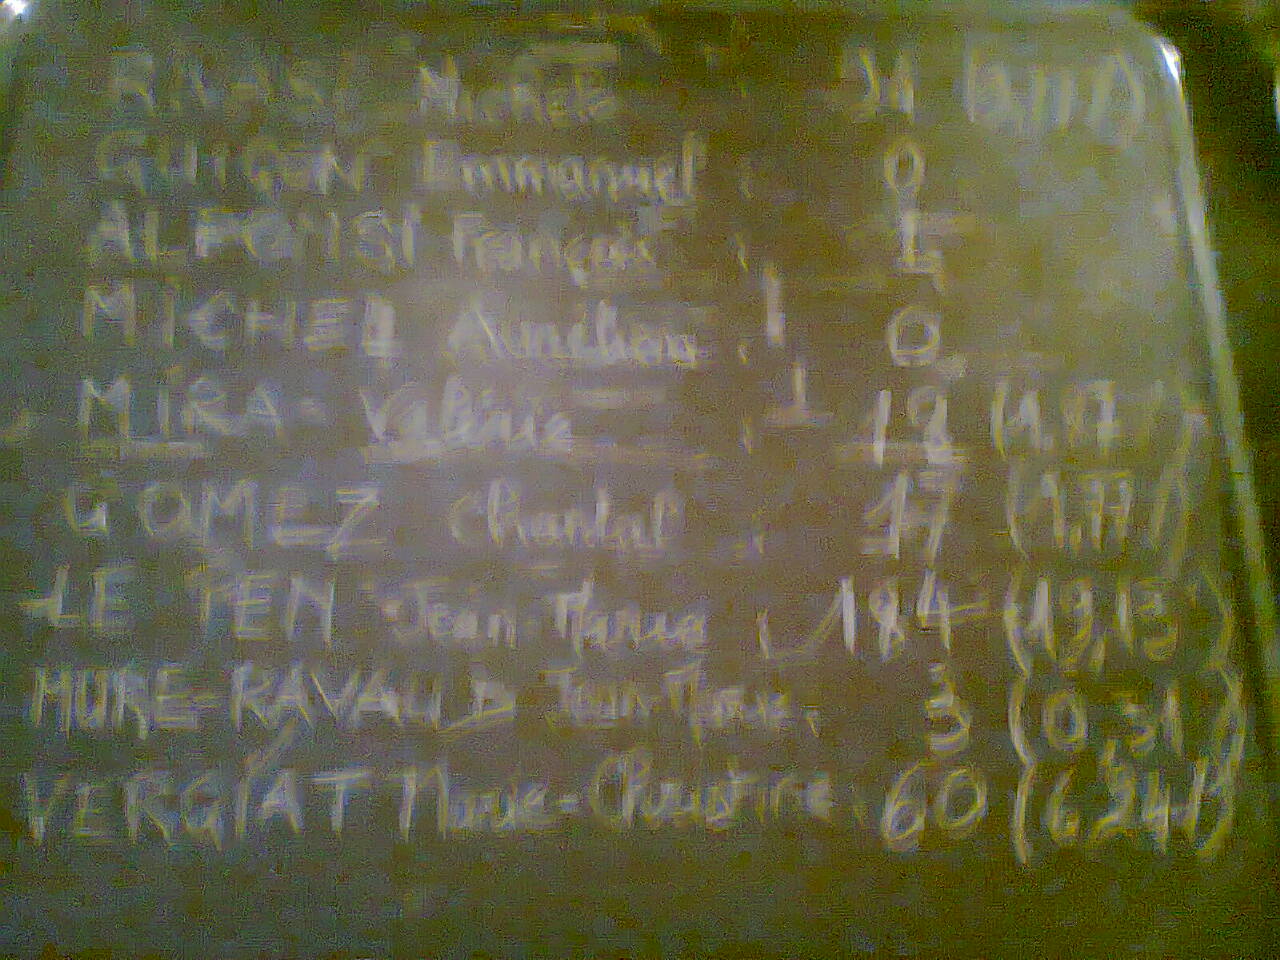 RIVASI Michèle
GUIGON Emmanuel : 0
ALFONSI François : 1
MICHEL Aurélien : 0
MIRA Valérie : 18 (1,87)
GOMEZ Chantal : 17 (1,77)
LE PEN Jean-Marie : 184
MURE-RAVAUD Jean-Marie : 3 (0,31)
VERGIAT Marie-Christine : 60 (6,241)